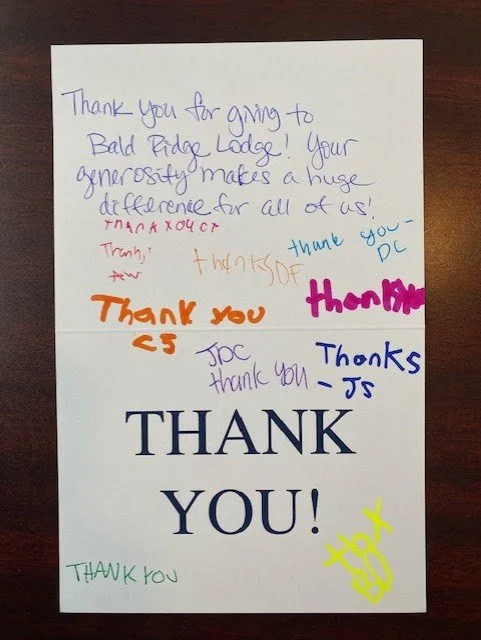 Thank you for giving to
Bald Ridge Lodge! Your
generosity makes a huge
difference for all of us!
thank you CP
Thanks
AW
thanks DF
thank you-
DC
thank you
Thank you
CJ
JDC
thank you
Thanks
- JS
THANK
YOU!
THANK YOU